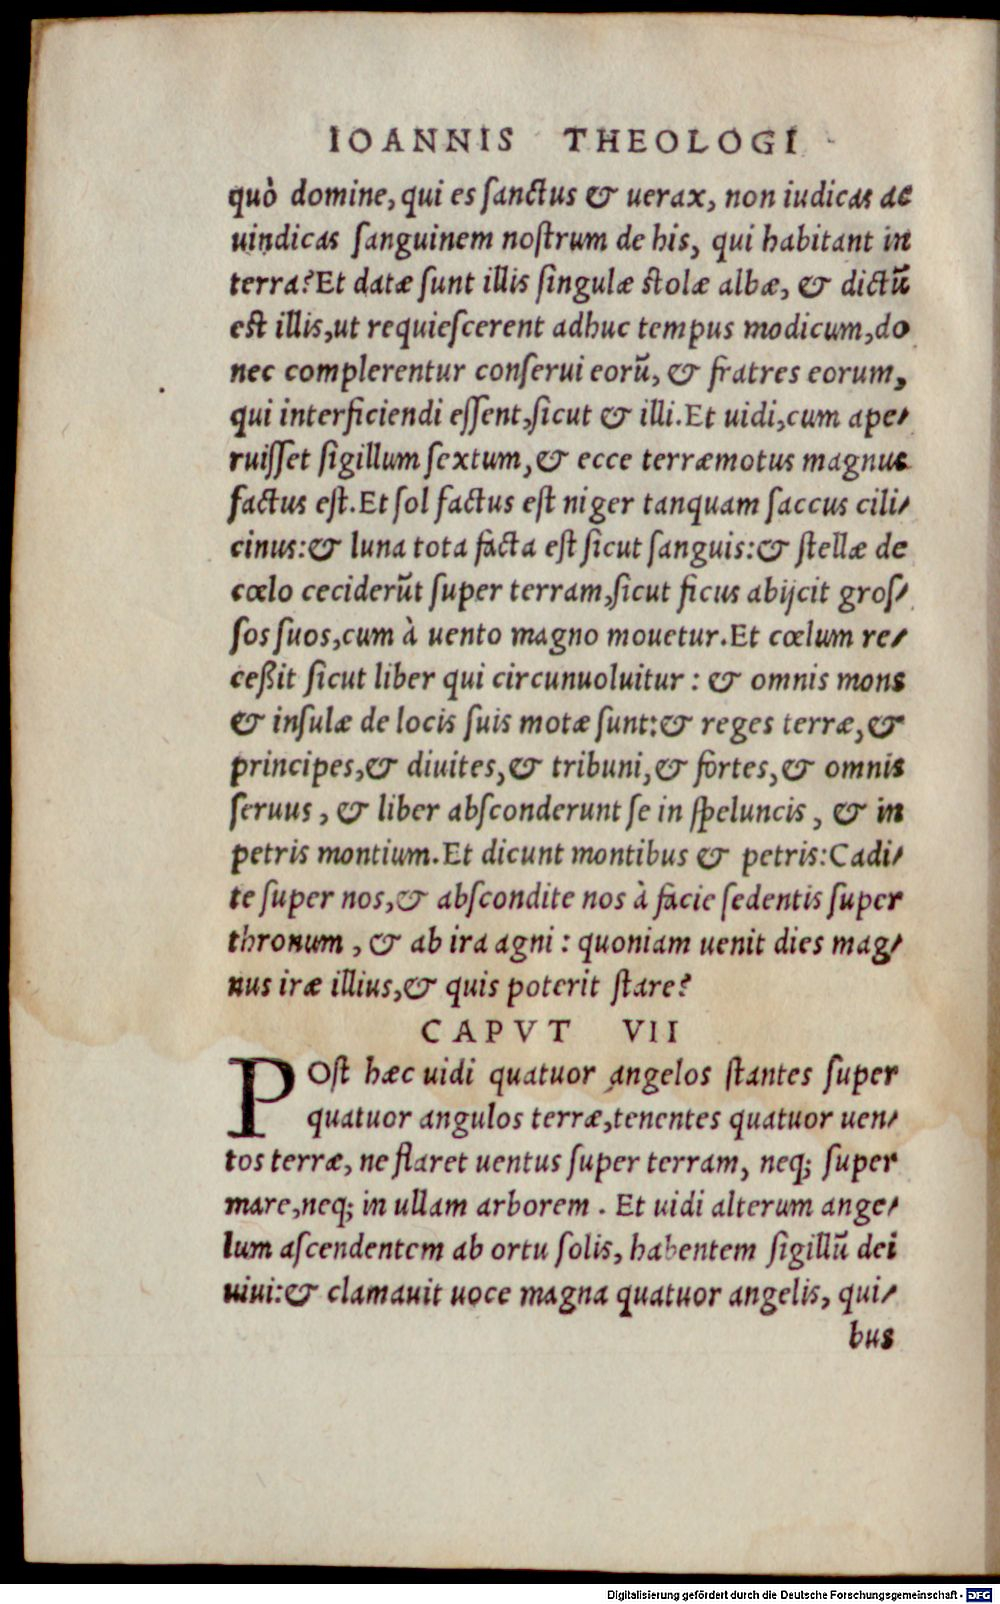 IOANNIS THEOLOGI
quò domine, qui es ſanctus & uerax, non iudicas ac
uindicas ſanguinem noſtrum de his, qui habitant in
terra? Et datæ ſunt illis ſingulæ ſtolæ albæ, & dictū
eſt illis, ut requieſcerent adhuc tempus modicum, do
nec complerentur conſerui eorū, & fratres eorum,
qui interficiendi eſſent, ſicut & illi. Et uidi, cum ape-
ruiſſet ſigillum ſextum, & ecce terræmotus magnus
factus eſt. Et ſol factus eſt niger tanquam ſaccus cili-
cinus: & luna tota facta eſt ſicut ſanguis: & ſtellæ de
cœlo ceciderūt ſuper terram, ſicut ficus abijcit groſ-
ſos ſuos, cum à uento magno mouetur. Et cœlum re-
ceßit ſicut liber qui circunuoluitur : & omnis mons
& inſulæ de locis ſuis motæ ſunt: & reges terræ, &
principes, & diuites, & tribuni, & fortes, & omnis
ſeruus , & liber abſconderunt ſe in ſpeluncis , & in
petris montium. Et dicunt montibus & petris: Cadi-
te ſuper nos, & abſcondite nos à facie ſedentis ſuper
thronum , & ab ira agni : quoniam uenit dies mag-
nus iræ illius, & quis poterit ſtare?
CAPVT VII
POſt hæc uidi quatuor angelos ſtantes ſuper
quatuor angulos terræ, tenentes quatuor uen-
tos terræ, ne flaret uentus ſuper terram, neq; ſuper
mare, neq; in ullam arborem . Et uidi alterum ange-
lum aſcendentem ab ortu ſolis, habentem ſigillū dei
uiui: & clamauit uoce magna quatuor angelis, qui-
bus
Digitalisierung gefördert durch die Deutsche Forschungsgemeinschaft - DFG